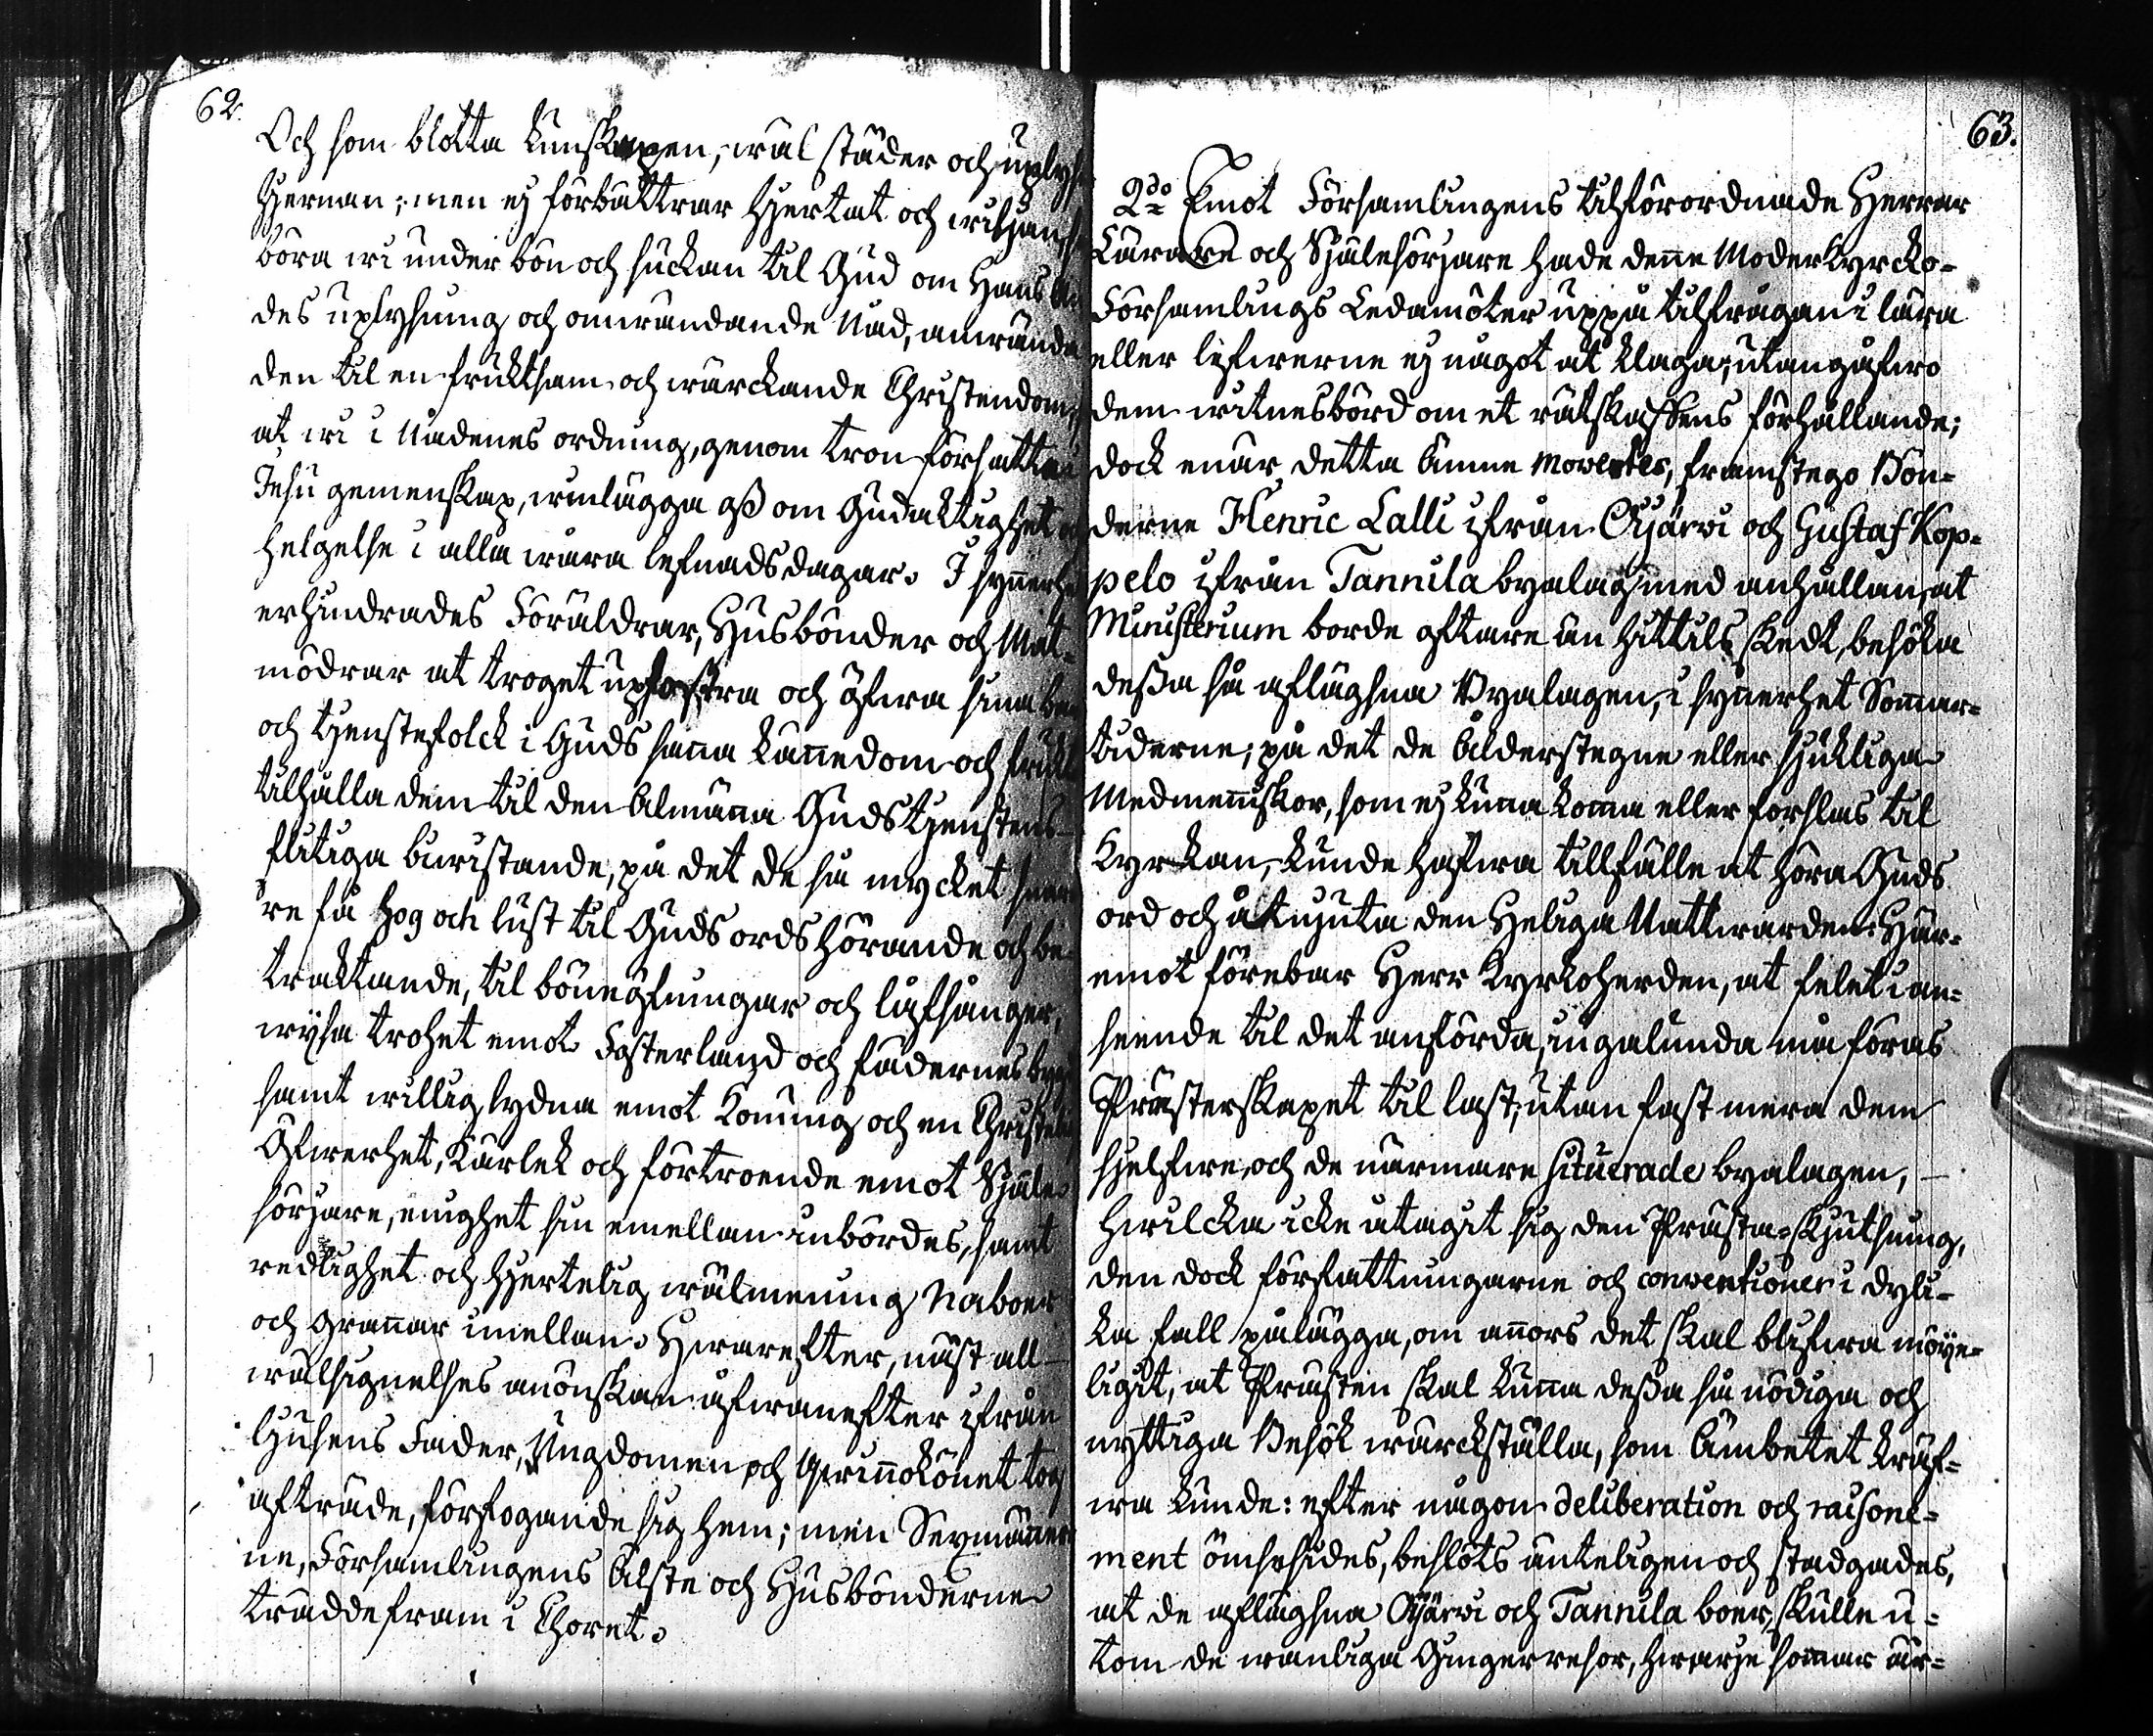 62.
Och som blotta kunskapen, wäl städer och uplyse
Hjernan; men ej förbättrar Hjertat och wiljan, så
böra wi under bön och suckan til Gud om Hans An
des uplysning och omwändande Nåd, anwända
den til en fruktsam och wärckande Christendom,
at wi i Nådenes ordning, genom tron försatte i
Jesu gemenskap, winlägga oß om Gudaktighet och
helgelse i alla wåra lefnads dagar. I synnerhet
erhindrades Föräldrar, Husbönder och Mat-
mödrar at troget upfostra och öfwa sina barn
och tjenstefolck i Guds sanna kännedom och fruktan
tilhålla dem til den Almänna Gudstjenstens
flitiga biwistande, på det de så mycket snara
re få Hog och lust til Guds ords hörande och be-
traktande, til böneöfningar och låfsånger,
wysa trohet emot Fosterland och fädernesbygd
samt willig lydna emot Konung och en Christelig
Öfwerhet, Kärlek och förtroende emot Själe-
sörjare, enighet sin emellan inbördes, samt
redlighet och hjertelig wälmening Naboer
och grannar imellan. Hwarefter, näst all
wälsignelses anönskan åfwanefter ifrån
Ljusens Fader, Ungdomen och Qwinnokönet tog
afträde, förfogande sig hem; men Sexmänner
ne, Församlingens Älste och Husbönderne
trädde fram i Choret.
63.
2do Emot Församlingens tilförordnade Herrar
Lärare och Själesörjare hade denne Moderkyrcko-
Församlings Ledamöter uppå tilfrågan i lära
eller lefwerne ej något at klaga; utan gåfwo
dem witnesbörd om et rätskaffens förhållande;
dock enär detta ämne moverades, framstego Bön-
derne Henric Lalli ifrån Oijärwi och Gustaf Kop-
pelo ifrån Tannila byalag med anhållan, at
Ministerium borde oftare än hittils skedt, besöka
deßa så aflägsna Byalagen, i synnerhet Sommar-
tiderne; på det de Ålderstegne eller sjukliga
Medmenniskor, som ej kunna komma eller forslas til
Kyrkan, kunde hafwa tillfälle at höra Guds
ord och åtnjuta den Heliga Nattwarden. Här-
emot förebar Herr Kyrkoherden, at felet i an-
seende til det anförda, ingalunda må föras
Prästerskapet til last, utan fast mera dem
sjelfwe, och de närmare situerade byalagen,
hwilcka icke åtagit sig den Prästa-skjutsning,
den dock författningarne och conventioner i dyli-
ka fall pålägga, om annors det skal blifwa möje-
ligit, at Prästen skal kunna deßa så nödiga och
nyttiga Besök wärckställa, som Ämbetet kräf-
wa kunde: efter någon deliberation och raisone-
ment ömsesides, beslöts änteligen och stadgades,
at de aflägsna Oijärwi och Tannila boer, skulle u-
tom de wanliga Gingerresor, hwarje sommar är-